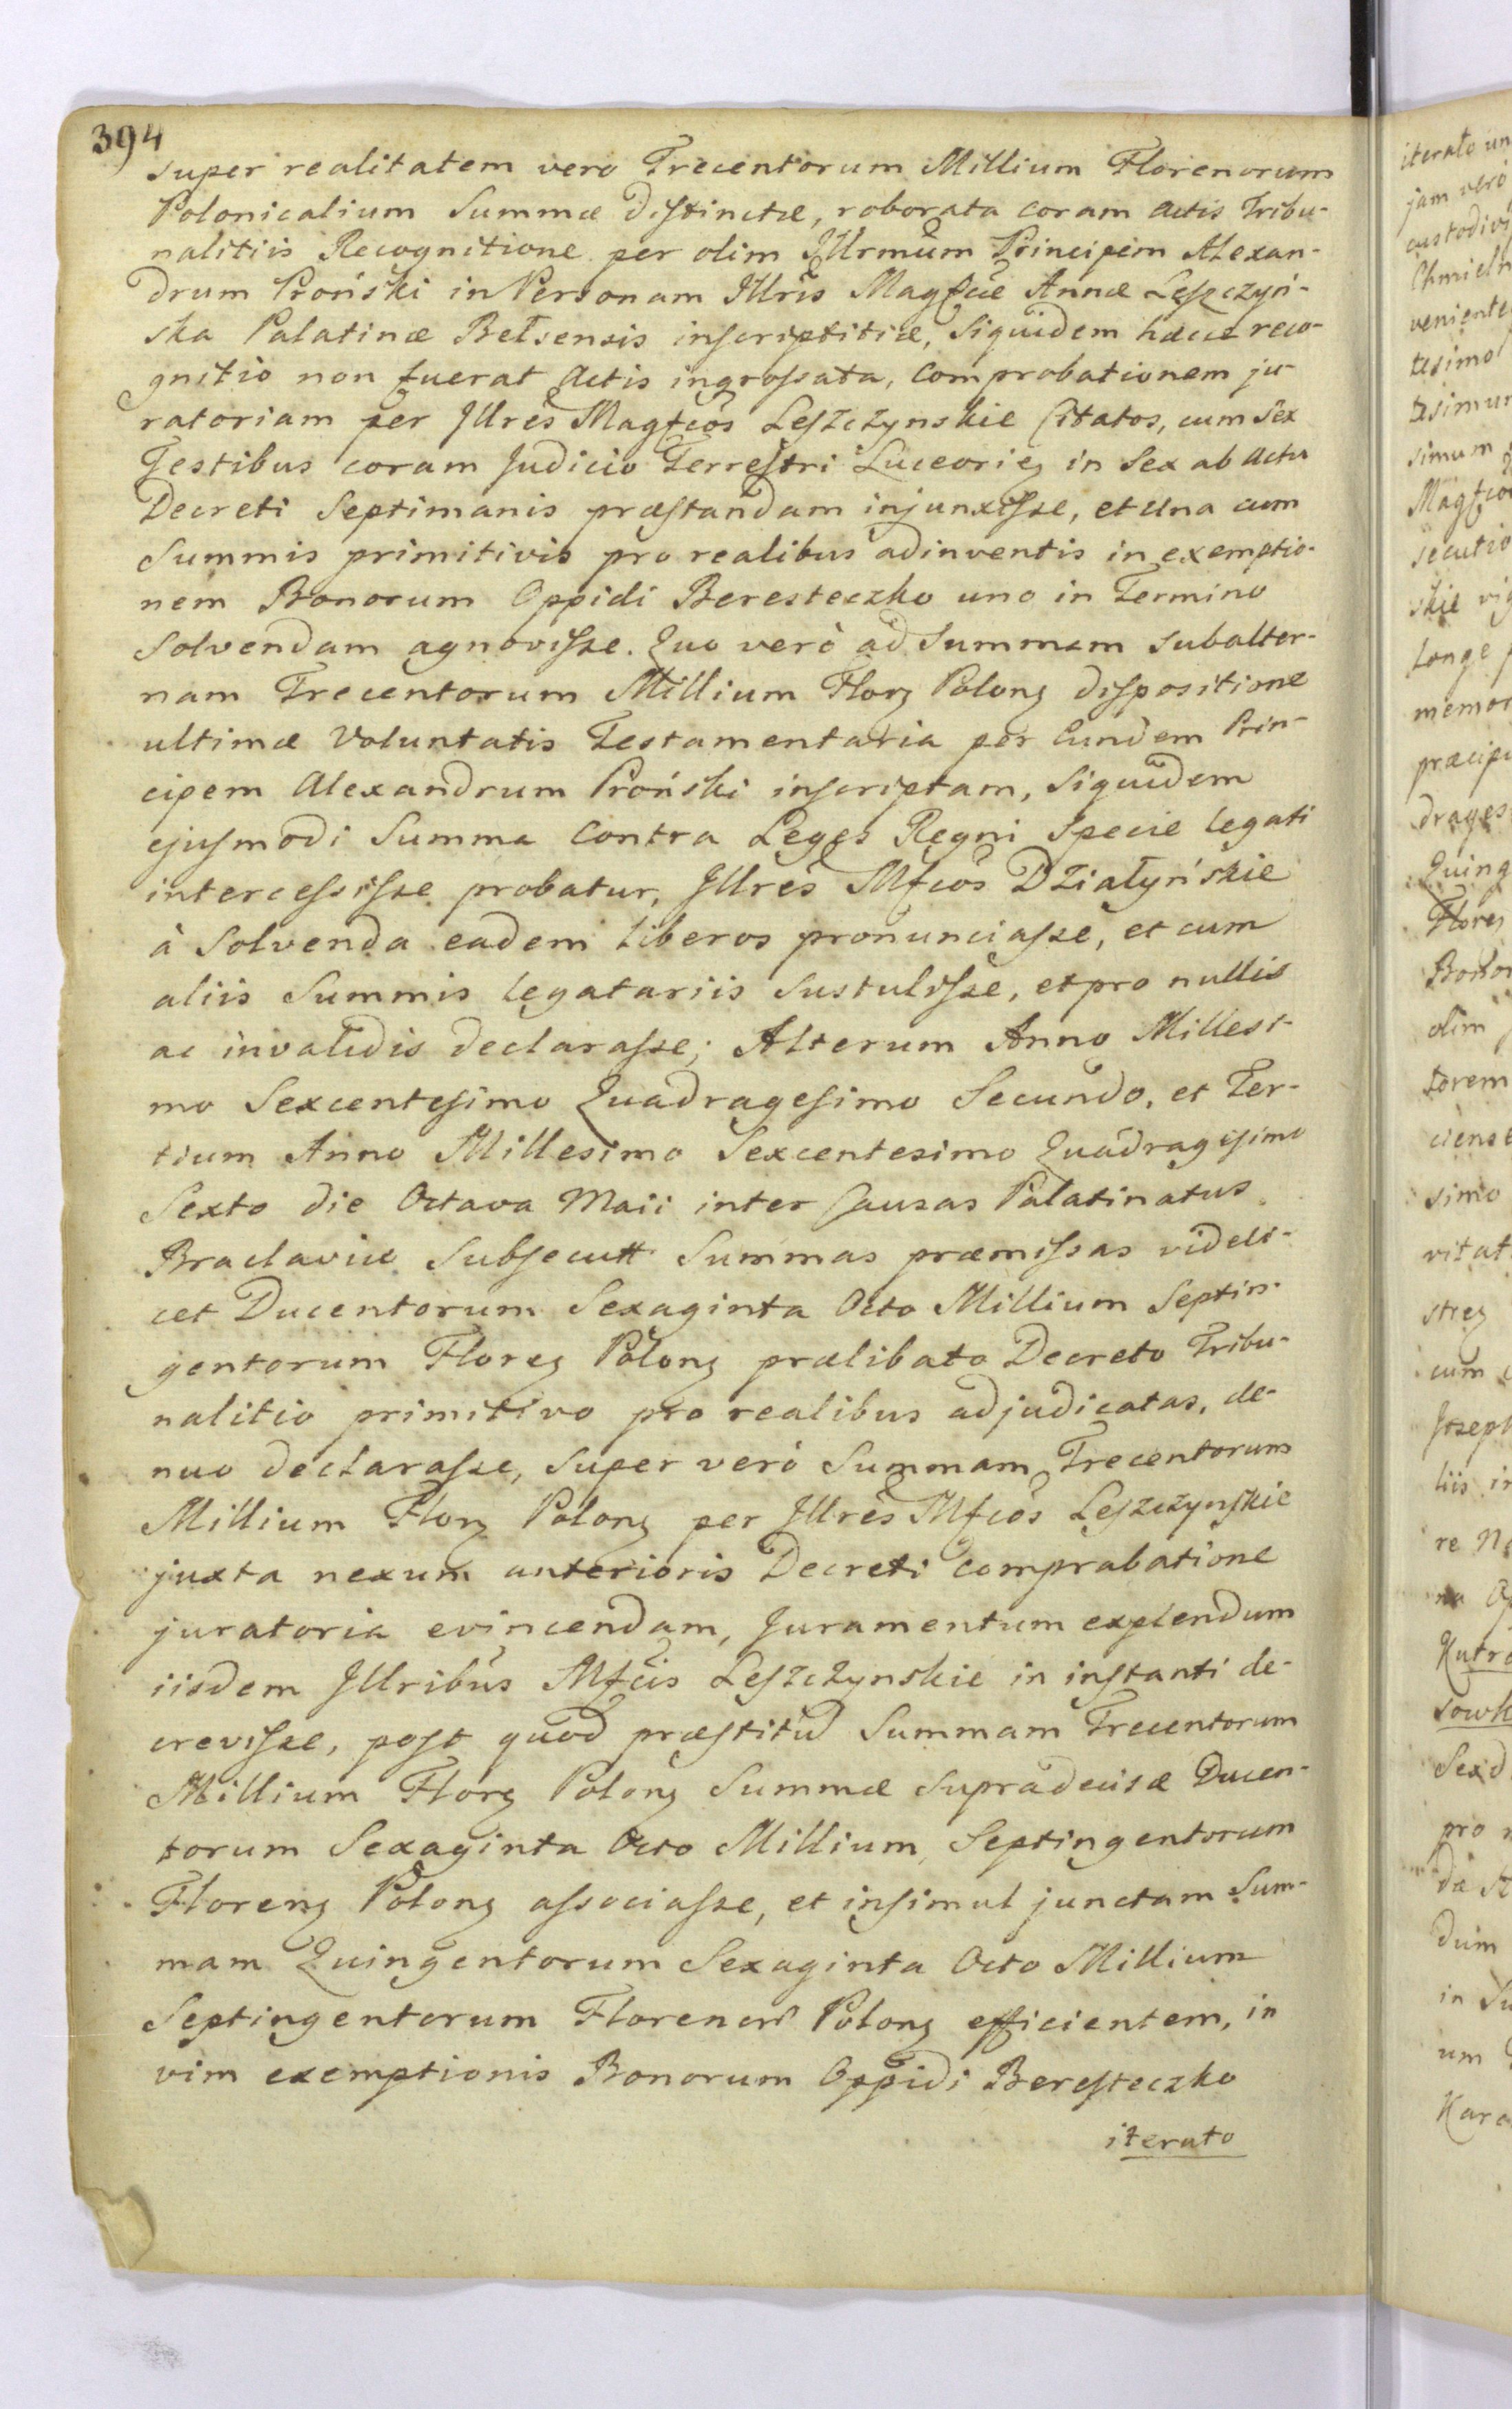 394
super realitatem vero Trecentorum Millium Florenorum
Polonicalium Summæ diſtinctæ, roborata coram actis Tribu-
nalitiis Recognitione per olim Illrmum Principem Alexan-
drum Proński in Personam Illris Magfcæ Annæ Leſzczyń-
ska Palatinæ Bełsensis inſcriptitiæ, Siquidem hæcce reco-
gnitio non fuerat Actis ingroſsata, Comprobationem ju-
ratoriam per Jllres Magfcos Leſzczynskie Citatos, cum Sex
Testibus coram Judicio Terreſtri Luceoriẽ in Sex ab Actu
Decreti Septimanis præſtandam injunxiſse, et una cum
Summis primitivis pro realibus adinventis in exemptio-
nem Bonorum Oppidi Beresteczko uno in Termino
Solvendam agnoviſse. Quo verò ad Summam Subalter-
nam Trecentorum Millium Florʒ Polonʒ diſpositione
ultimæ Voluntatis Testamentaria per Eundem Prin-
cipem Alexandrum Proński inſcriptam, Siquidem
ejuſmodi Summa Contra Leges Regni Specie legati
interceſsiſse probatur, Jllres Mfcos Działyńskie
à Solvenda eadem liberos pronunciaſse, et cum
aliis Summis legatariis Sustuliſse, et pro nullis
ac invalidis declaraſse; Alterum Anno Millesi-
mo Sexcenteſimo Quadrageſimo Secundo, et Ter-
tium Anno Millesimo Sexcentesimo Quadrageſimo
Sexto die Octava Maii inter Causas Palatinatus
Braclaviæ Subſecutt Summas præmiſsas videli-
cet Ducentorum Sexaginta Octo Millium Septin-
gentorum Floreʒ Polonʒ prælibato Decreto Tribu-
nalitio primitivo pro realibus adjudicatas, de-
nuo declaraſse, Super verò Summam Trecentorum
Millium Florʒ Polonʒ per Jllres Mfcos Leſzczynſkie
juxta nexum anterioris Decreti comprobatione
juratoria evincendam, Juramentum explendum
iisdem Jllribus Mfcis Leſzczynskie in inſtanti de-
creviſse, poſt quod præſtitũ Summam Trecentorum
Millium Florʒ Polonʒ Summæ Supradecisæ Ducen-
torum Sexaginta Octo Millium, Septingentorum
Florenʒ Polonʒ aſsociaſse, et inſimul junctam Sum-
mam Quingentorum Sexaginta Octo Millium
Septingentorum Florenor Polonʒ efficientem, in
vim exemptionis Bonorum Oppidi Bereſteczko
iterato
iterato
jam verò
venient
Magfco
skie
longe
memor
olim
torem
simo
vitat
cum
Joseph
liis
re
Sexd
pro
dum
in
um